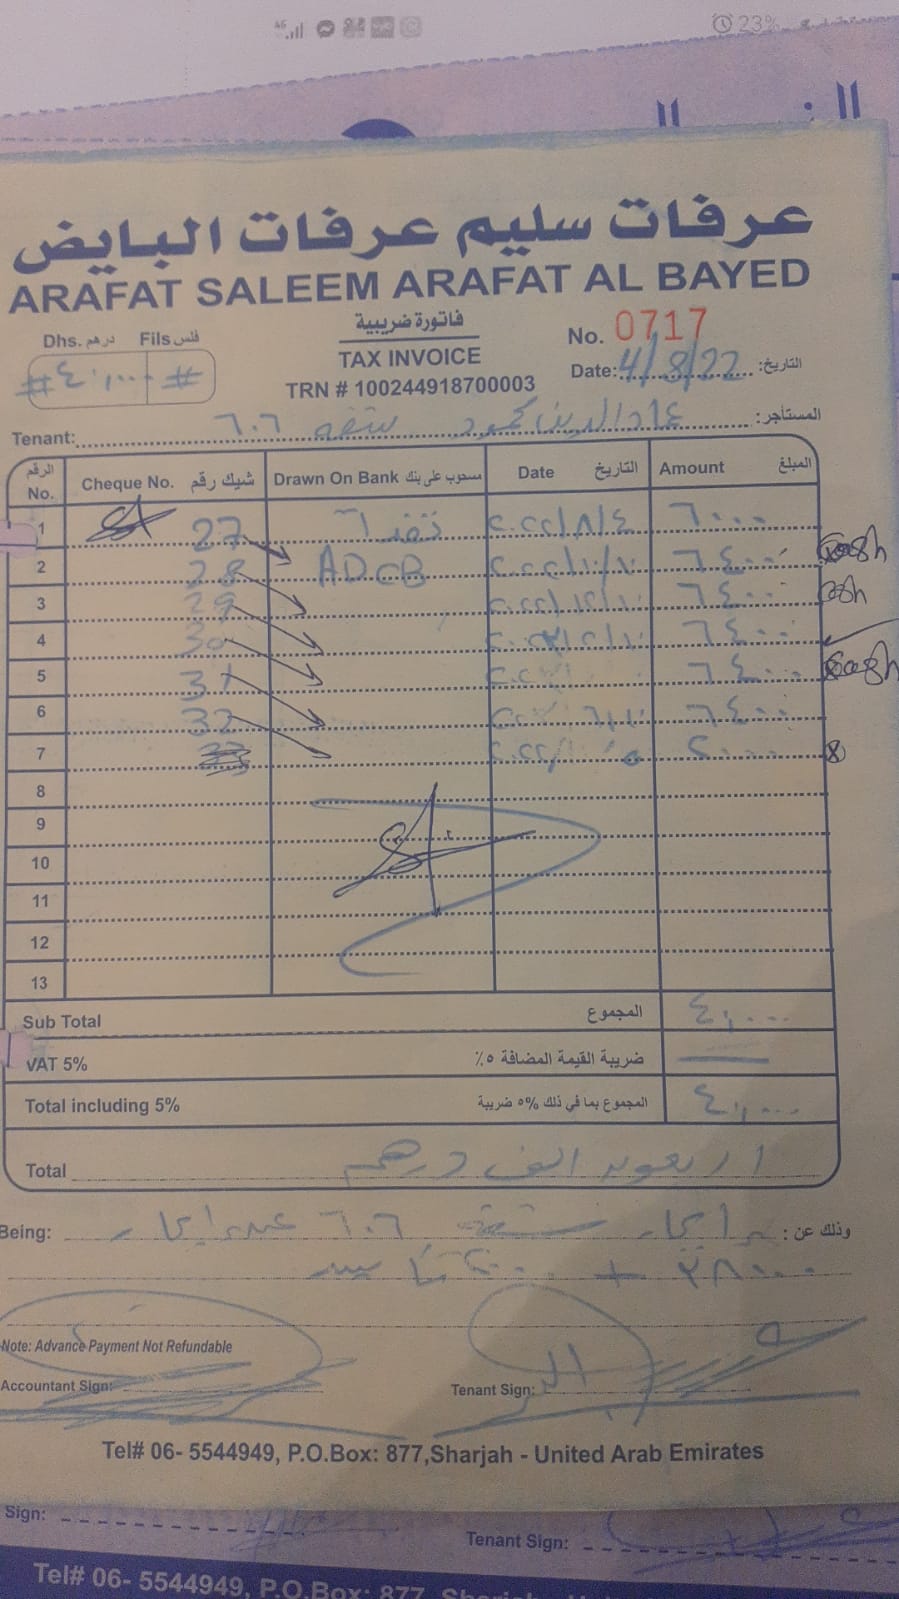 4G 23%
عرفات سليم عرفات البايض
ARAFAT SALEEM ARAFAT AL BAYED
Dhs. درهم Fils فلس
فاتورة ضريبية
TAX INVOICE
TRN # 100244918700003
No. 0717
Date: 4/8/22 التاريخ:
# ٤٠,٠٠٠ #
Tenant: عماد الدين محمود شقه ٦٠٦ المستأجر:
الرقم No. Cheque No. شيك رقم Drawn On Bank مسحوب على بنك Date التاريخ Amount المبلغ
1 27 نقدا ٢٠٢٢/٨/٤ ٦٠٠٠
2 28 ADCB ٢٠٢٢/١٠/١٠ ٦٤٠٠ Cash
3 29 ٢٠٢٢/١٢/١٠ ٦٤٠٠ Cash
4 30 ٦٤٠٠
5 31 ٦٤٠٠ Cash
6 32 ٦٤٠٠
7 ٢٠٠٠
8
9
10
11
12
13
Sub Total المجموع ٤٠,٠٠٠
VAT 5% ضريبة القيمة المضافة ٥٪
Total including 5% المجموع بما في ذلك ٥% ضريبة ٤٠,٠٠٠
Total اربعون الف درهم
Being: ايجار شقة ٦٠٦ وذلك عن:
٣٨٠٠٠ + ٢٠٠٠ تامين
Note: Advance Payment Not Refundable
Accountant Sign: Tenant Sign:
Tel# 06- 5544949, P.O.Box: 877,Sharjah - United Arab Emirates
Sign: Tenant Sign:
Tel# 06- 5544949, P.O.Box: 877